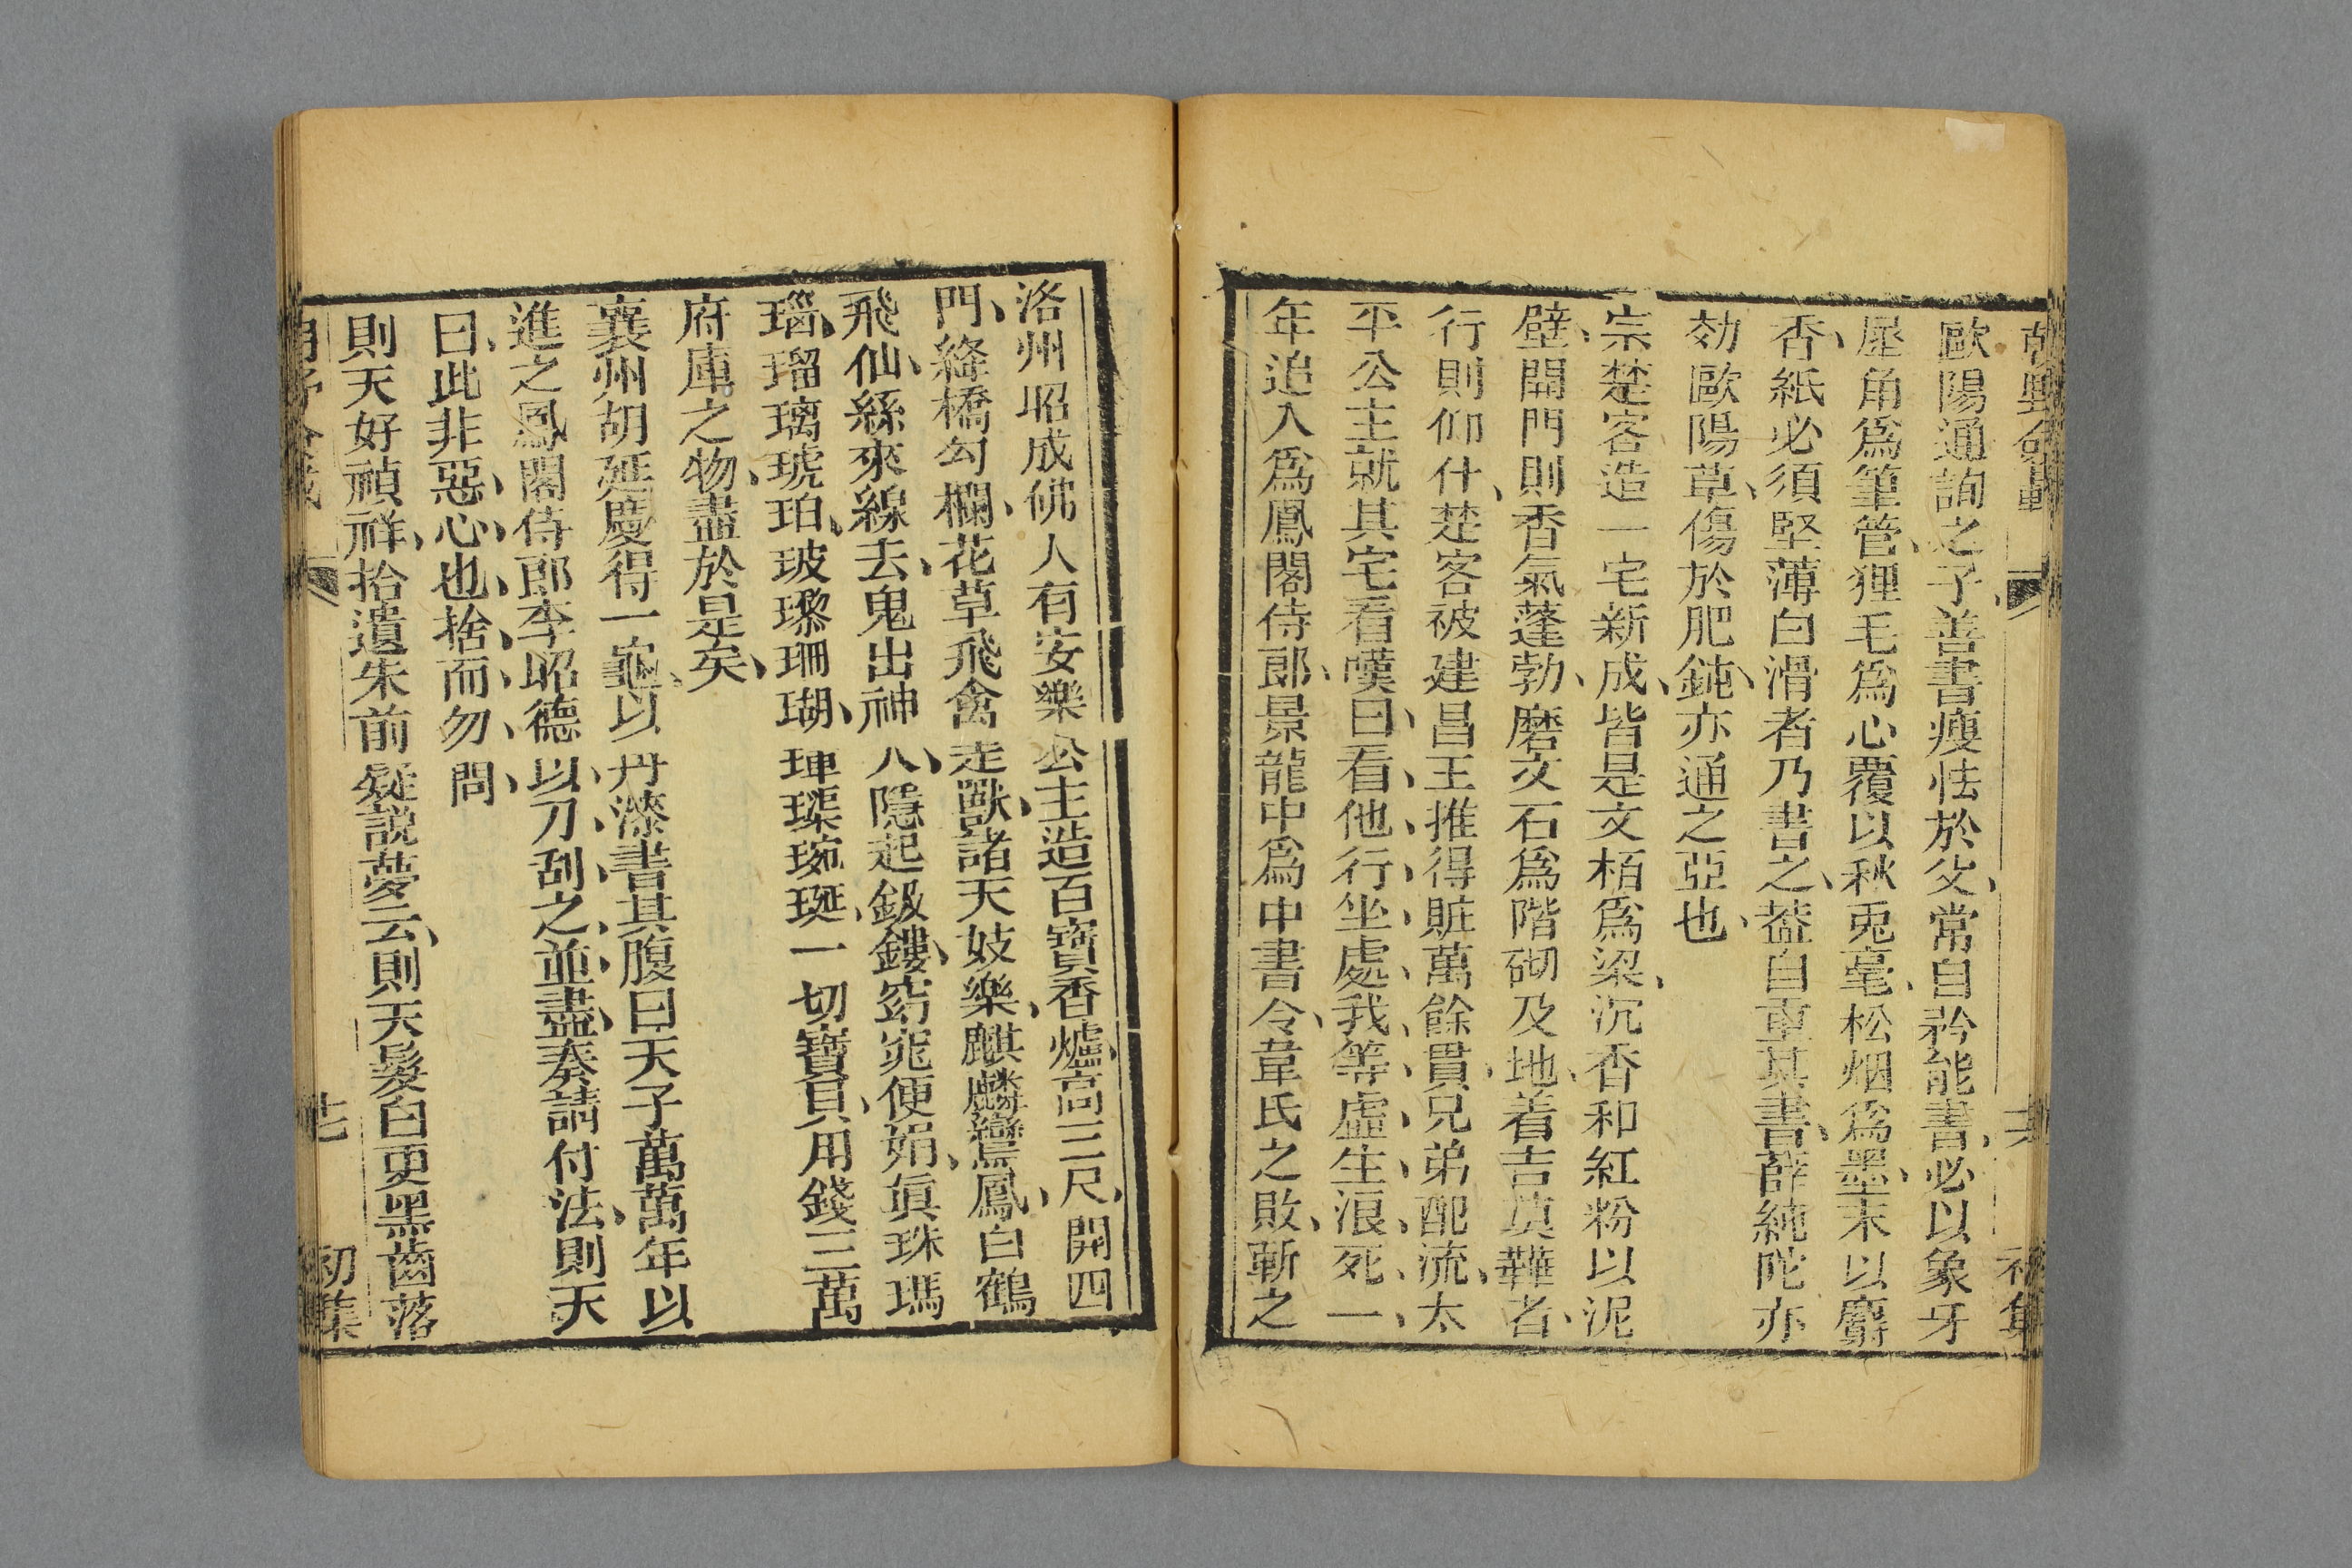 朝野僉載
歐陽通詢之子善書瘦怯於父常自矜能書必以象牙
犀角爲筆管狸毛爲心覆以秋兎毫松烟爲墨末以麝
香紙必須堅薄白滑者乃書之葢自重其書薛純陀亦
効歐陽草傷於肥鈍亦通之亞也
宗楚客造一宅新成皆是文栢爲梁沉香和紅粉以泥
壁開門則香氣蓬勃磨文石爲階砌及地着吉莫鞾者
行則仰仆楚客被建昌王推得賍萬餘貫兄弟配流太
平公主就其宅看嘆曰看他行坐處我等虛生浪死一
年追入爲鳳閣侍郎景龍中爲中書令韋氏之敗斬之
洛州昭成佛人有安樂公主造百寶香爐高三尺開四
門絳橋勾欄花草飛禽走獸諸天妓樂麒麟鸞鳳白鶴
飛仙絲來線去鬼出神入隱起鈒鏤窈窕便娟眞珠瑪
瑙瑠璃琥珀玻瓈珊瑚琿琹琬琰一切寶貝用錢三萬
府庫之物盡於是矣
襄州胡延慶得一龜以丹漆書其腹曰天子萬萬年以
進之鳳閣侍郎李昭德以刀刮之並盡奏請付法則天
曰此非惡心也捨而勿問
則天好禎祥拾遺朱前疑説夢云則天髮白更黑齒落
十七
初集